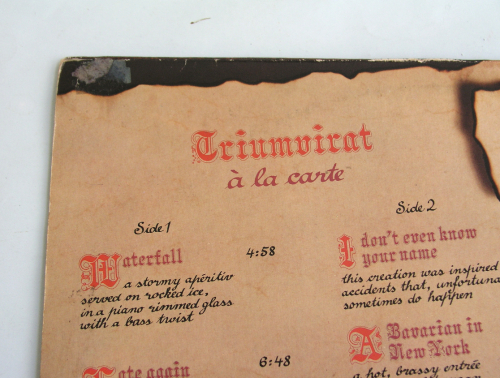 Triumvirat
à la carte
Side 1
Waterfall 4:58
a stormy apéritiv
served on rocked ice,
in a piano rimmed glass
with a bass twist
Late again 6:48
Side 2
I don't even know
your name
this creation was inspired
accidents that,
sometimes do happen
A Bavarian in
New York
a hot, brassy entrée